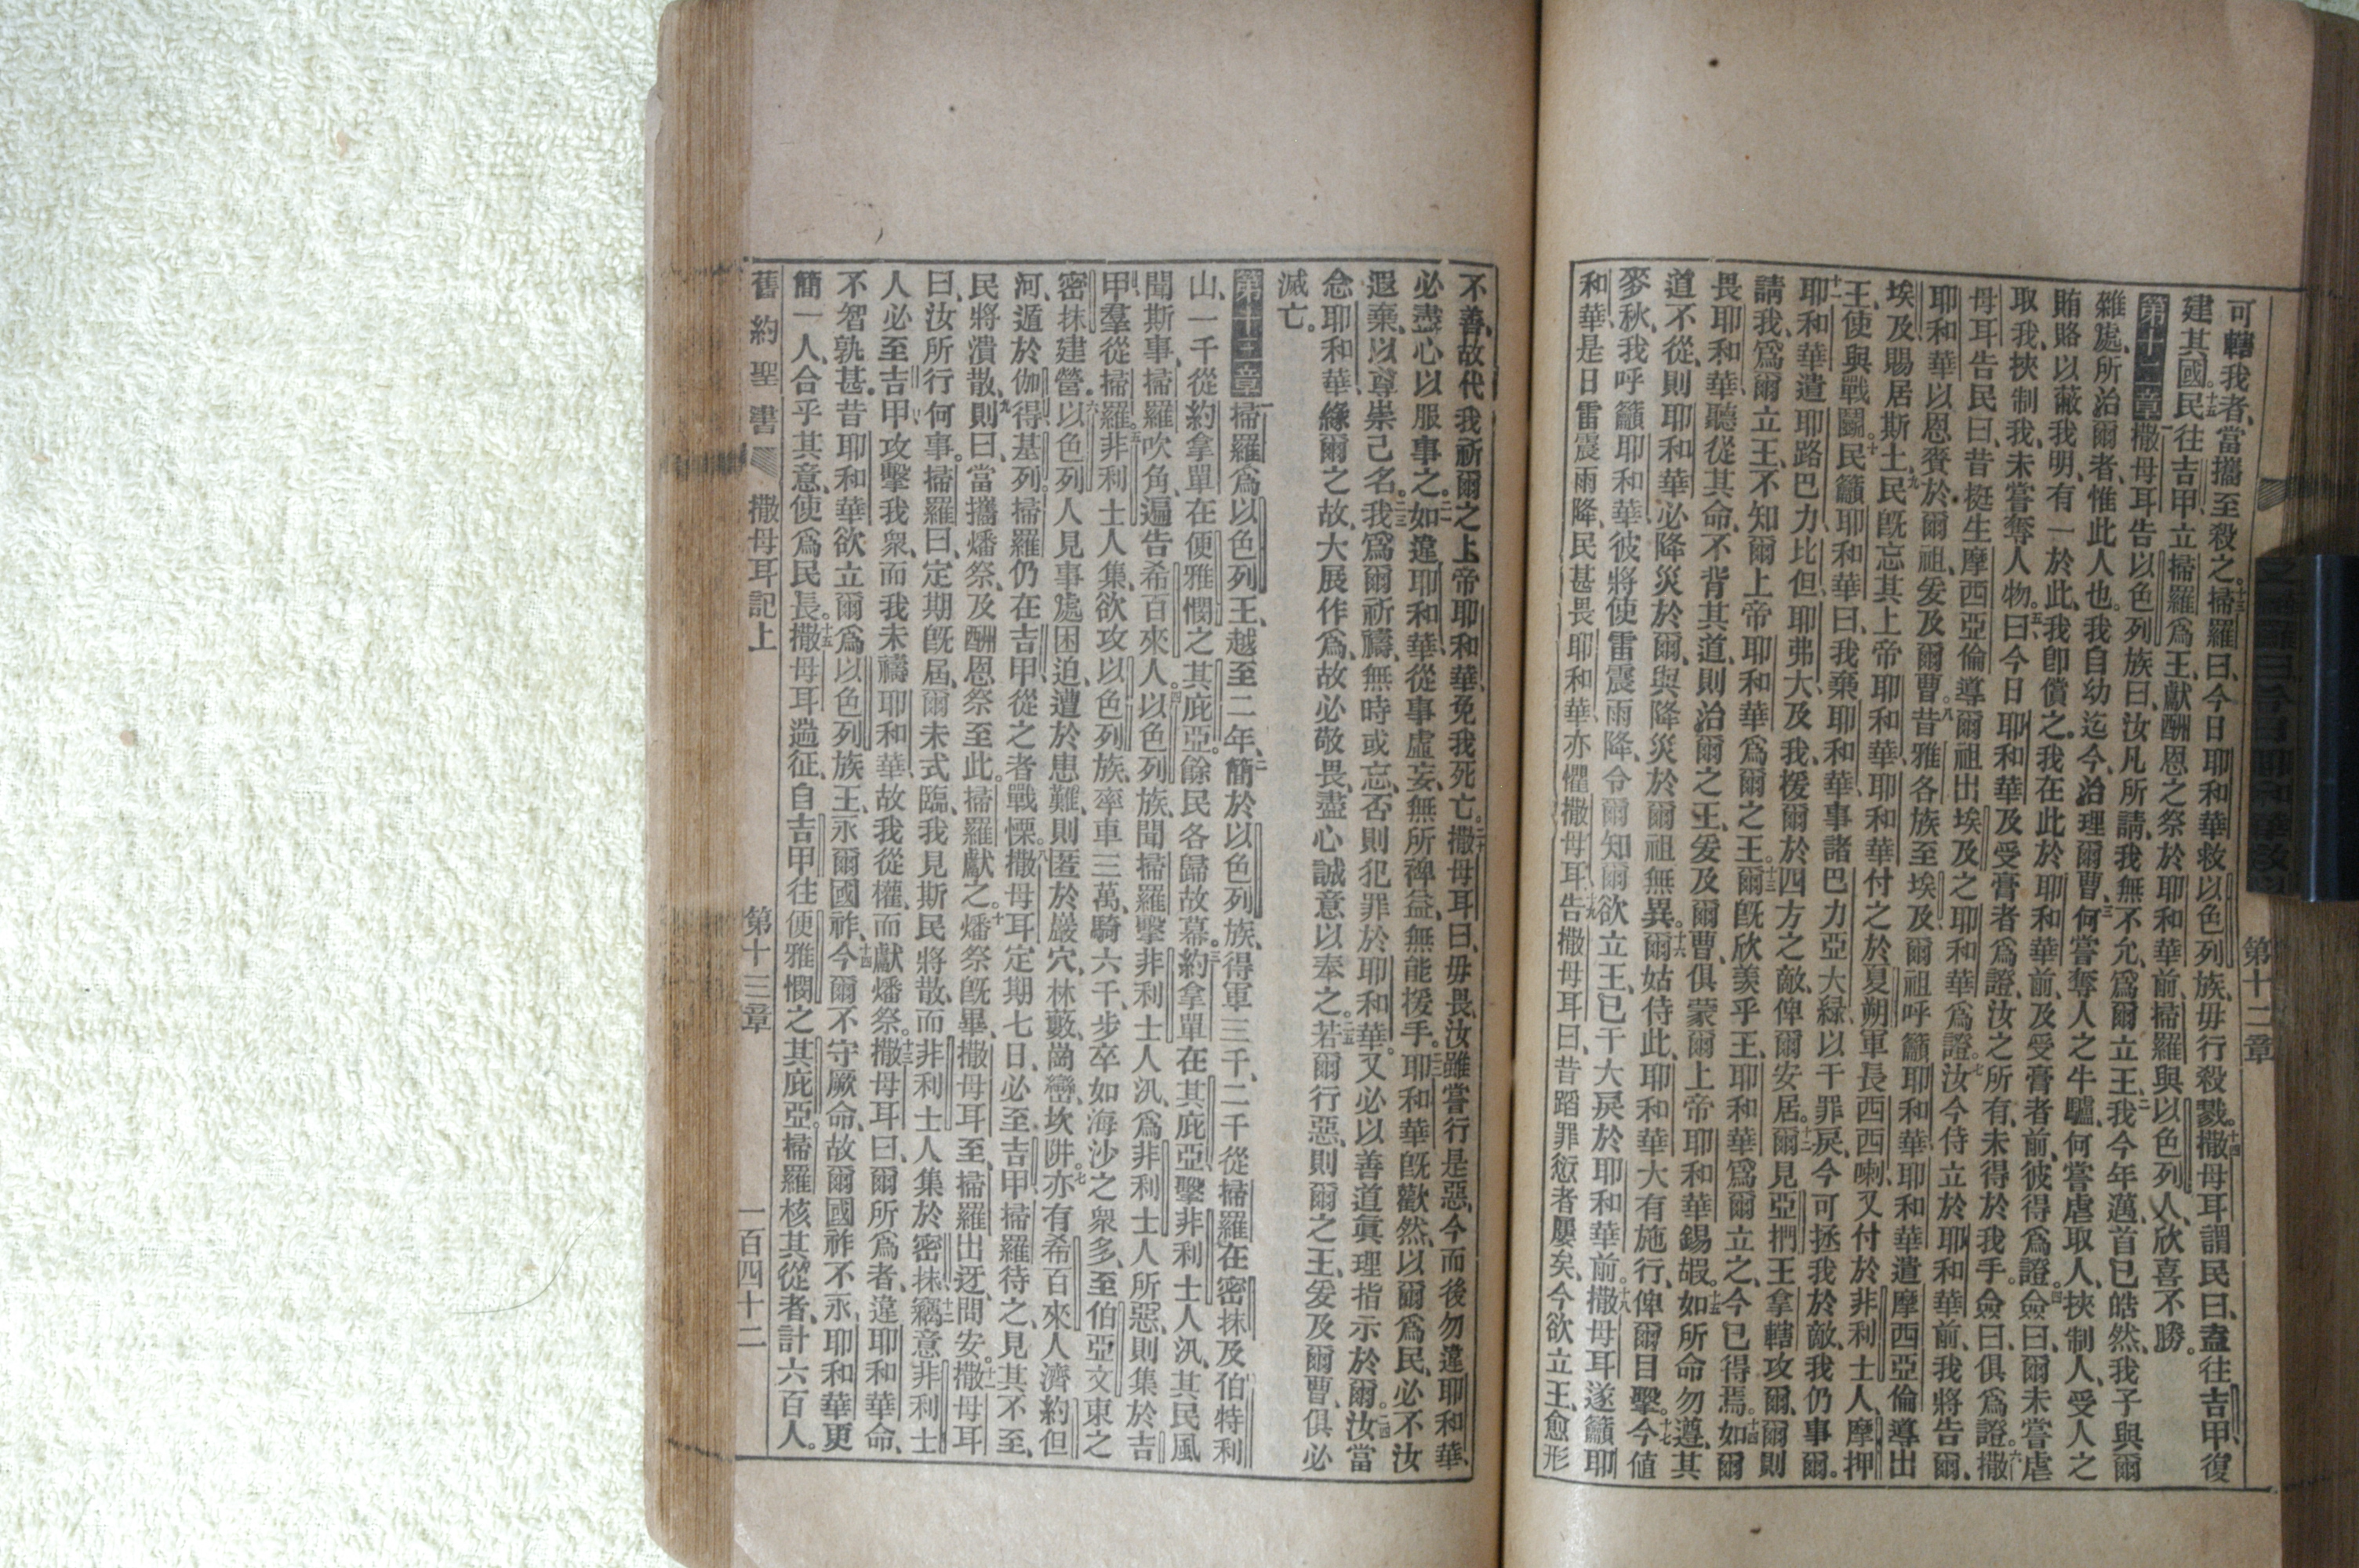 可轄我者、當攜至殺之。十三掃羅曰、今日耶和華救以色列族、毋行殺戮。十四撒母耳謂民曰、盍往吉甲、復
建其國。十五民往吉甲、立掃羅爲王、獻酬恩之祭於耶和華前、掃羅與以色列人、欣喜不勝。
第十二章一撒母耳告以色列族曰、汝凡所請、我無不允、爲爾立王、二我今年邁、首已皓然、我子與爾
雜處、所治爾者、惟此人也。我自幼迄今、治理爾曹、三何嘗奪人之牛驢、何嘗虐取人、挾制人、受人之
賄賂以蔽我明、有一於此、我卽償之、我在此於耶和華前、及受膏者前、彼得爲證。四僉曰、爾未嘗虐
取我、挾制我、未嘗奪人物。五曰、今日耶和華及受膏者爲證、汝之所有、未得於我手。僉曰、俱爲證。六撒
母耳告民曰、昔挺生摩西亞倫、導爾祖出埃及之耶和華爲證。七汝今侍立於耶和華前、我將告爾、
耶和華以恩賚於爾祖、爰及爾曹。八昔雅各族至埃及、爾祖呼籲耶和華、耶和華遣摩西亞倫導出
埃及、賜居斯土、九民旣忘其上帝耶和華、耶和華付之於夏朔軍長西西喇、又付於非利士人、摩押
王、使與戰鬭、十民籲耶和華曰、我棄耶和華、事諸巴力亞大綠、以干罪戾、今可拯我於敵、我仍事爾。
十一耶和華遣耶路巴力、比但、耶弗大、及我、援爾於四方之敵、俾爾安居。十二爾見亞捫王拿轄攻爾、爾則
請我、爲爾立王、不知爾上帝耶和華爲爾之王。十三爾旣欣羨乎王、耶和華爲爾立之、今已得焉。十四如爾
畏耶和華、聽從其命、不背其道、則治爾之王、爰及爾曹、俱蒙爾上帝耶和華錫嘏。十五如所命勿遵、其
道不從、則耶和華必降災於爾、與降災於爾祖無異。十六爾姑侍此、耶和華大有施行、俾爾目擊。十七今値
麥秋、我呼籲耶和華、彼將使雷震雨降、令爾知爾欲立王、已干大戾於耶和華前。十八撒母耳遂籲耶
和華、是日雷震雨降、民甚畏耶和華、亦懼撒母耳、十九告撒母耳曰、昔蹈罪愆者屢矣、今欲立王、愈形
不善、故代我祈爾之上帝耶和華、免我死亡。二十撒母耳曰、毋畏、汝雖嘗行是惡、今而後勿違耶和華、
必盡心以服事之。二一如違耶和華、從事虛妄、無所裨益、無能援手。二二耶和華旣歡然、以爾爲民、必不汝
遐棄、以尊崇己名。二三我爲爾祈禱、無時或忘、否則犯罪於耶和華。又必以善道眞理指示於爾。二四汝當
念耶和華、緣爾之故、大展作爲、故必敬畏、盡心誠意以奉之。二五若爾行惡、則爾之王、爰及爾曹、俱必
滅亡。
第十三章一掃羅爲以色列王、越至二年、二簡於以色列族、得軍三千、二千從掃羅在密抹及伯特利
山、一千從約拿單在便雅憫之其庇亞。餘民各歸故幕。三約拿單在其庇亞、擊非利士人汛、其民風
聞斯事、掃羅吹角、遍告希百來人。四以色列族、聞掃羅擊非利士人汛、爲非利士人所惡、則集於吉
甲、羣從掃羅。五非利士人集、欲攻以色列族、率車三萬、騎六千、步卒如海沙之衆多、至伯亞文東之
密抹建營。六以色列人見事處困迫、遭於患難、則匿於巖穴、林藪、崗巒、坎阱。七亦有希百來人濟約但
河、遁於伽得、基列。掃羅仍在吉甲、從之者戰慄。八撒母耳定期七日、必至吉甲、掃羅待之、見其不至、
民將潰散、九則曰、當攜燔祭、及酬恩祭至此。掃羅獻之。十燔祭旣畢、撒母耳至、掃羅出迓、問安。十一撒母耳
曰、汝所行何事。掃羅曰、定期旣屆、爾未式臨、我見斯民將散、而非利士人集於密抹、十二竊意非利士
人必至吉甲、攻擊我衆、而我未禱耶和華、故我從權、而獻燔祭。十三撒母耳曰、爾所爲者、違耶和華命、
不智孰甚。昔耶和華欲立爾爲以色列族王、永爾國祚、十四今爾不守厥命、故爾國祚不永、耶和華更
簡一人、合乎其意、使爲民長。十五撒母耳遄征、自吉甲往便雅憫之其庇亞。掃羅核其從者、計六百人。
舊約聖書 撒母耳記上 第十三章 一百四十二
第十二章